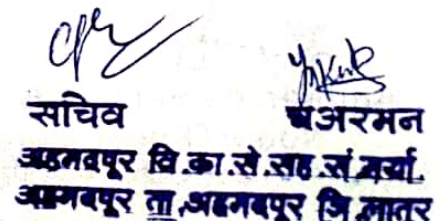 सचिव चेअरमन
अहमदपूर वि.का.से.सह.सं.मर्या.
अहमदपूर ता.अहमदपूर जि.लातूर